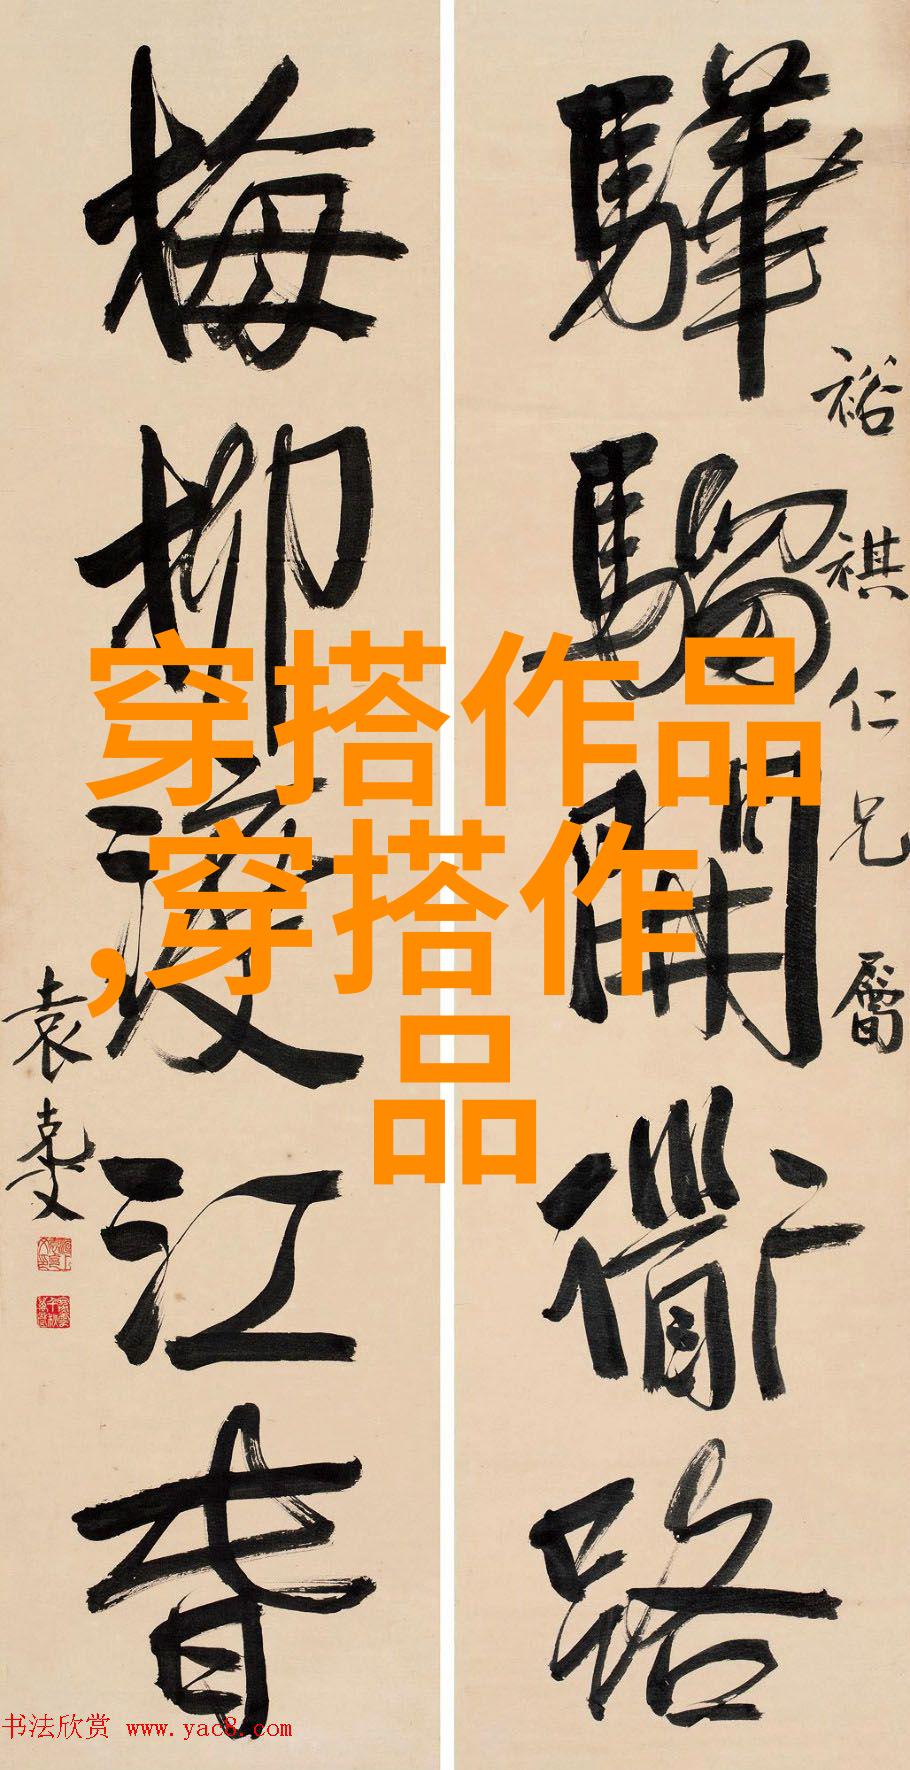 驊騮開衜路
裕祺仁兄屬
梅柳渡江春
袁克文
穿搭作品
,穿搭作
品
书法欣赏 www.yac8.com